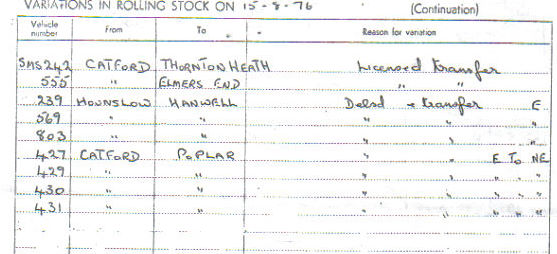 VARIATIONS IN ROLLING STOCK ON 15-8-76 (Continuation)
Vehicle number From To Reason for variation
SMS242 CATFORD THORNTON HEATH Licensed transfer
555 " ELMERS END " "
239 HOUNSLOW HANWELL Delsd + transfer E
569 " " " " "
803 " " " " "
427 CATFORD POPLAR " " E TO NE
429 " " " " " " "
430 " " " " " " "
431 " " " " " " "